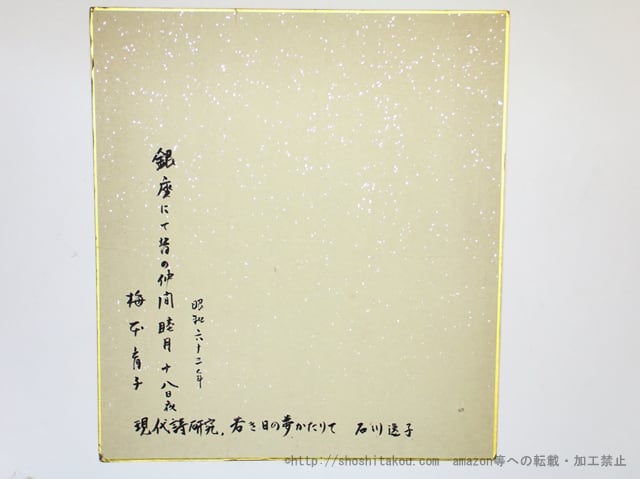 昭和六十二年
銀座にて昔の仲間 睦月十八日夜
梅本育子
現代詩研究、若き日の夢かたりて 石川逸子
©http://shoshitakou.com amazon等への転載・加工禁止